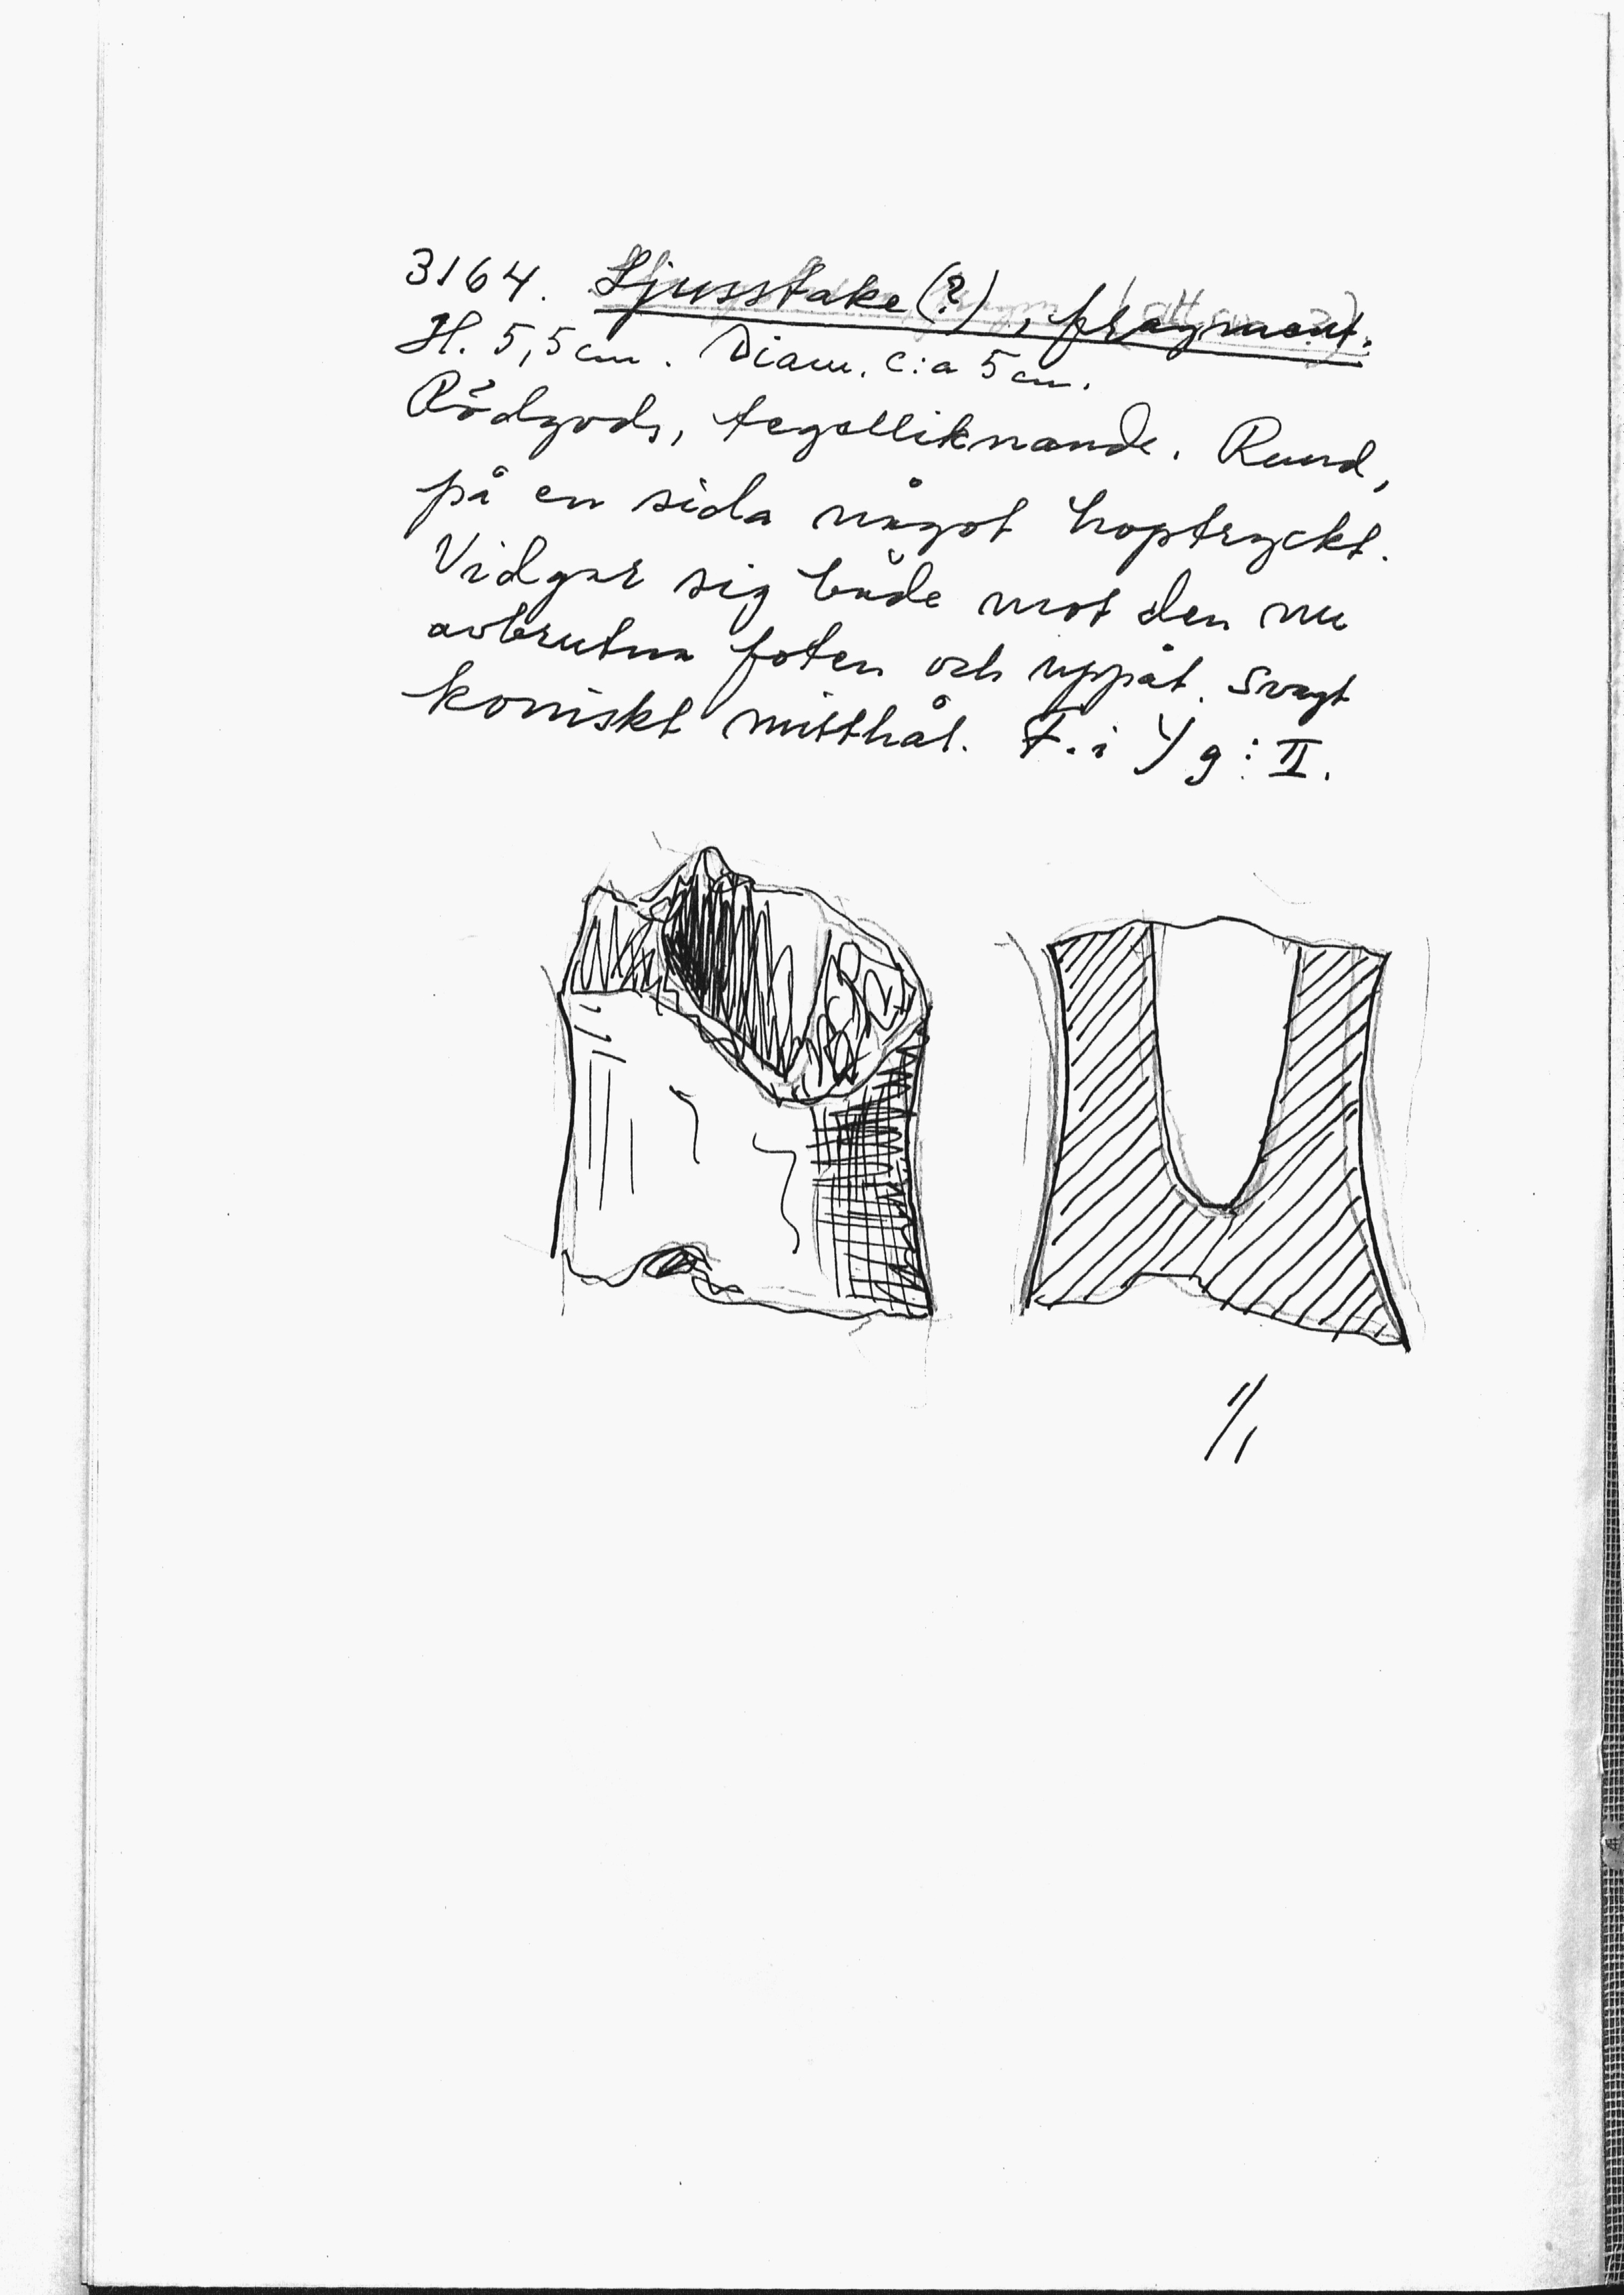 3164. Ljusstake (?), fragment.
H. 5,5 cm. Diam. c:a 5 cm.
Rödgods, tegelliknande. Rund,
på en sida något hoptryckt.
Vidgar sig både mot den nu
avbrutna foten och uppåt. Svagt
koniskt mitthål. F. i Y g : II.
1/1